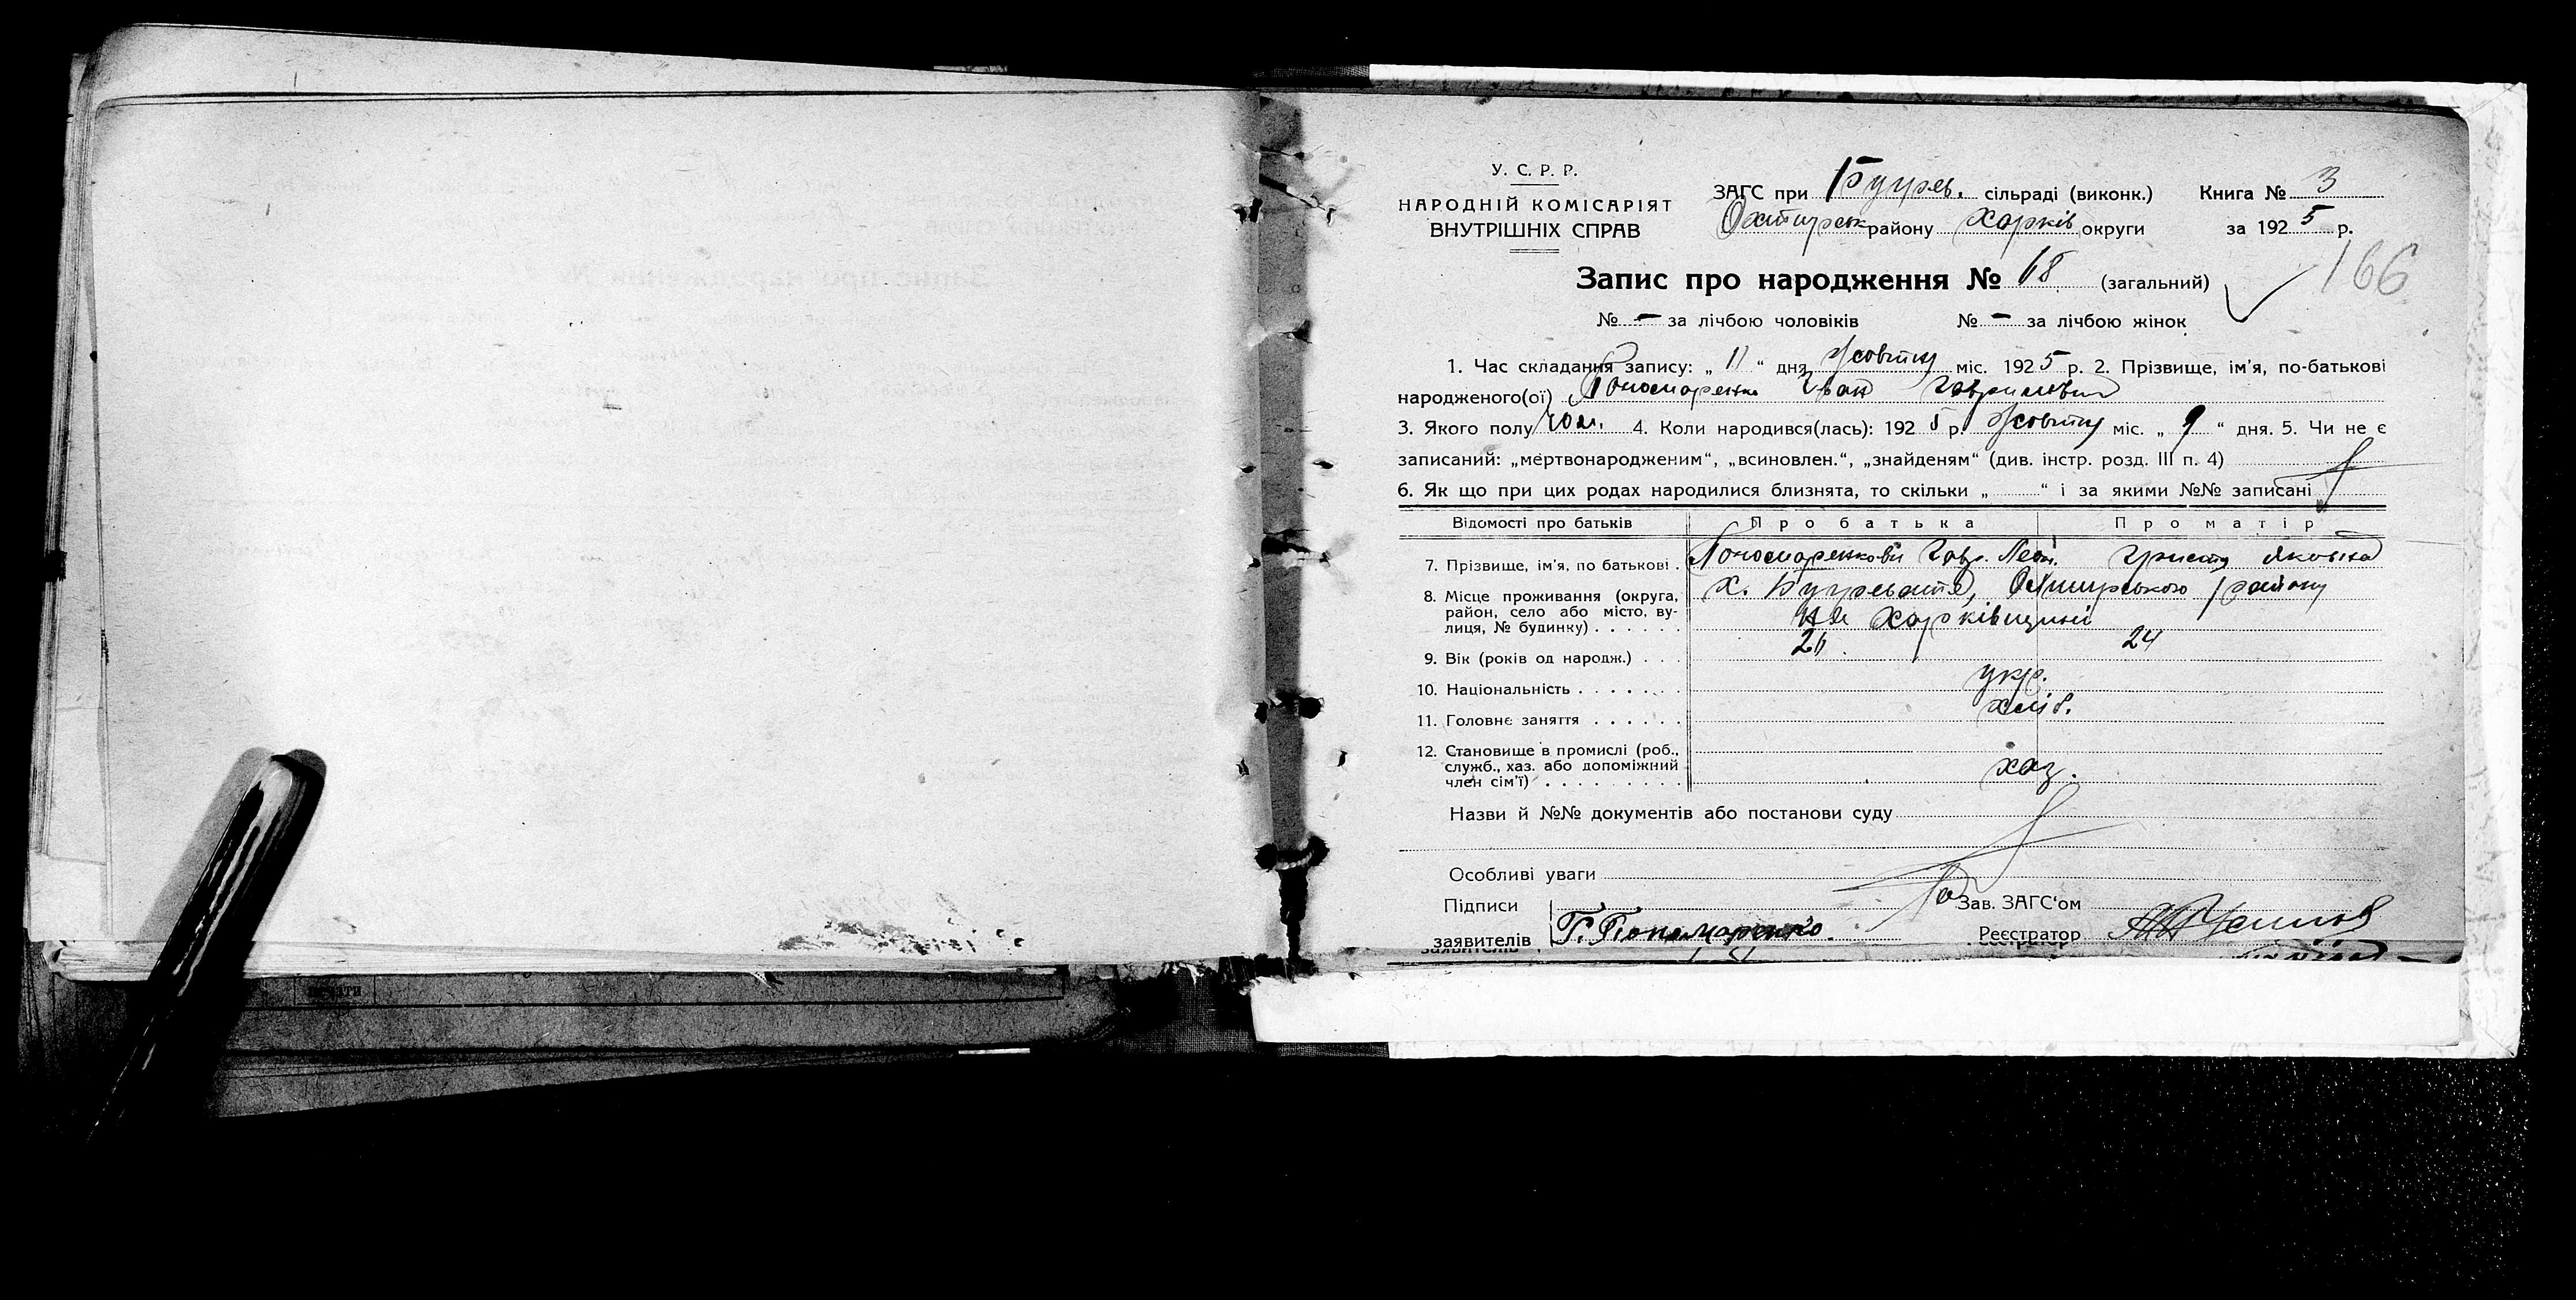 У. С. Р. Р.
НАРОДНІЙ КОМІСАРІЯТ
ВНУТРІШНІХ СПРАВ
ЗАГС при Бугрев. сільраді (виконк.) Книга № 3
Охтирськ району Харків округи за 1925 р.
166
Запис про народження № 68 (загальний)
№ – за лічбою чоловіків № – за лічбою жінок
1. Час складання запису: „ 11 “ дня жовтня міс. 1925 р. 2. Прізвище, ім’я, по-батькові
народженого(ої) Пономаренко Іван Гаврилович
3. Якого полу чол. 4. Коли народився(лась): 1925 р. жовтня міс. „ 9 “ дня. 5. Чи не є
записаний: „мертвонародженим“, „всиновлен.“, „знайденям“ (див. інстр. розд. III п. 4)
6. Як що при цих родах народилися близнята, то скільки „ “ і за якими №№ записані
Відомості про батьків Про батька Про матір
7. Прізвище, ім’я, по батькові . Пономаренкови Гавр. Леон. Христя Яковна
8. Місце проживання (округа, район, село або місто, вулиця, № будинку) х. Бугреватий, Охтирського району
на Харківщині
9. Вік (років од народж.) . . . 26 . 24
10. Національність . . . . . . . укр.
11. Головне заняття . . . . . . хліб.
12. Становище в промислі (роб.,
служб., хаз. або допоміжний
член сім’ї) . . . . . . . . . хаз.
Назви й №№ документів або постанови суду
Особливі уваги
Підписи За Зав. ЗАГС‘ом
заявителів Г. Пономаренко. Реєстратор